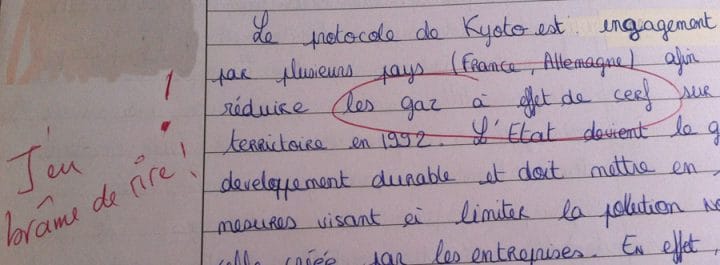 Le protocole de Kyoto est engagement
par plusieurs pays (France, Allemagne) afin
réduire les gaz à effet de cerf sur
territoire en 1992. L'Etat devient le g
developpement durable et doit mettre en
mesures visant ei limiter la polution
créée par les entreprises. En effet,
!
J'en
brâme de rire !